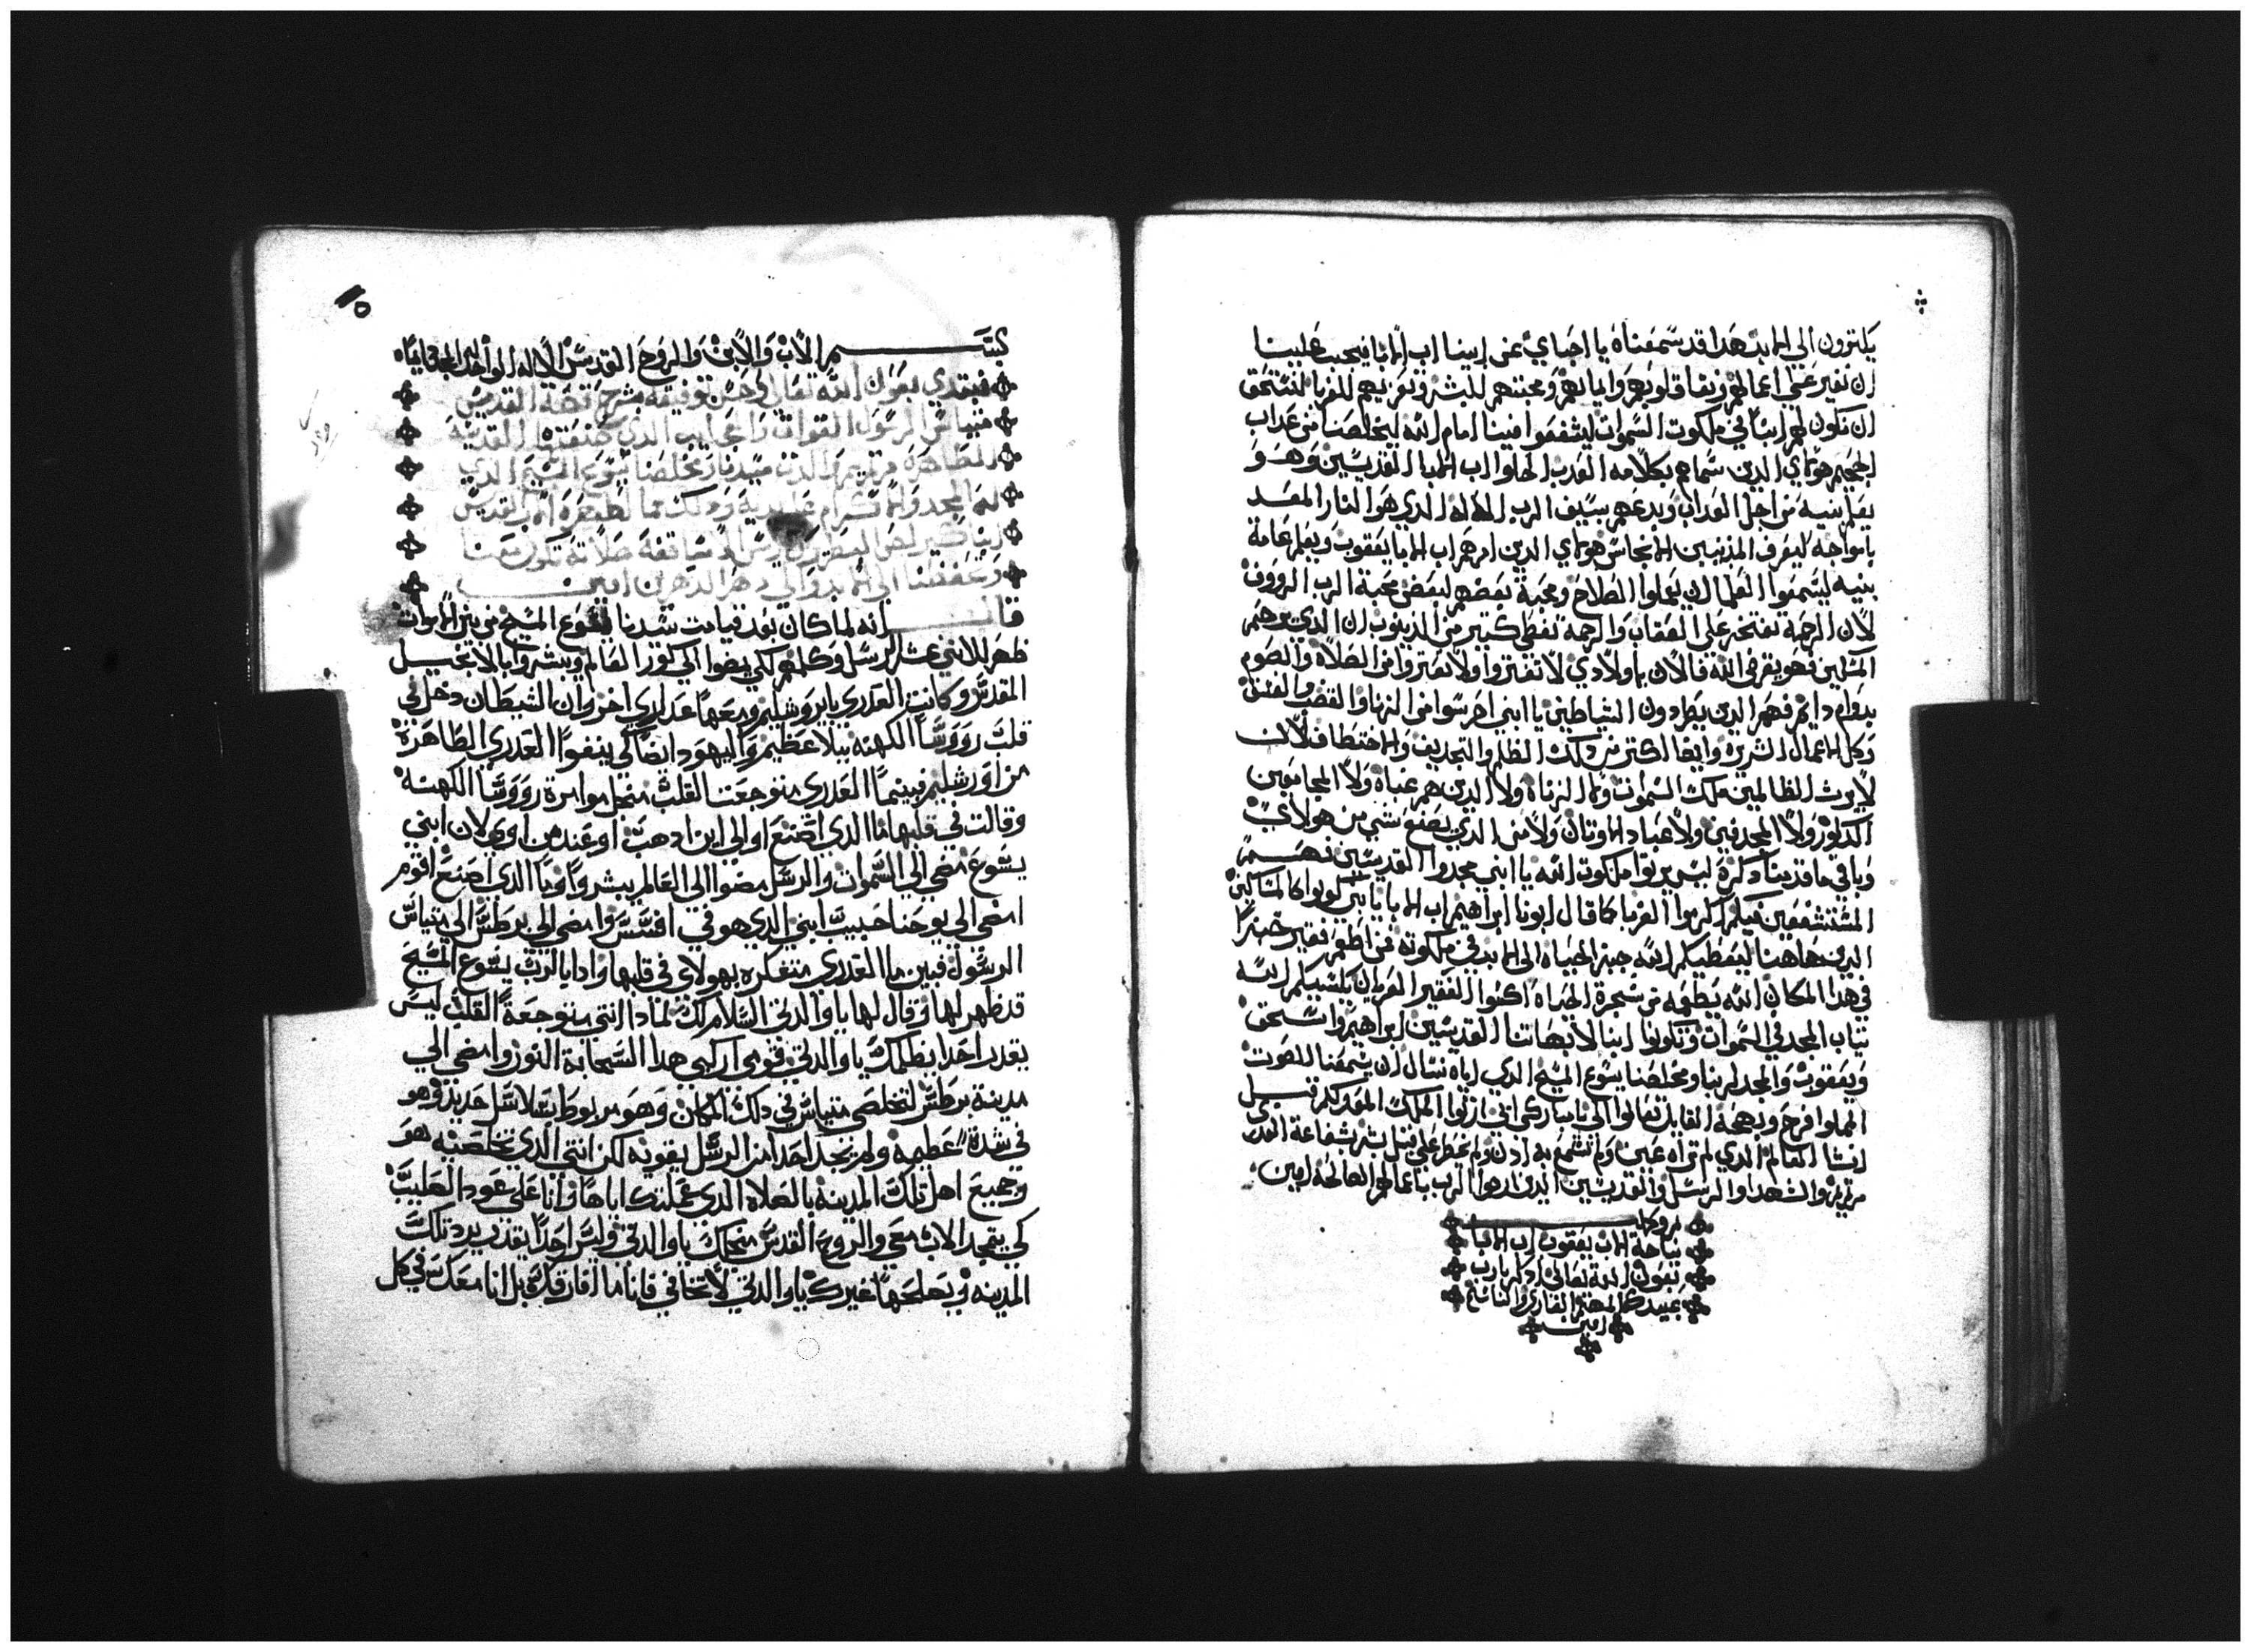 يكترون الي الابد هذا قد سمعناه يا احباي عن ابينا اب الابا فيجب علينا
ان نغير علي اعمالهم ونقاة قلوبهم وايمانهم ومحبتهم للبشر وتعزيهم للغربا لنستحق
ان تكون لهم ابنا في ملكوت السموات ليشفعوا فينا امام الله ليخلصنا من عداب
الجحيم هولاي الدين سماهم بكلامه العدب الحلو اب الابا القديسين وهو
يعلم بنيه من اجل العداب ويدعهم سيف الرب الاله الدي هو النار المعد
بامواجه ليعرف المدنبين الانجاس هولاي الدين امرهم اب الابا يعقوب ويعلم عامة
بنيه ليسمعوا العلما ان يعملوا الصلاح ومحبة بعضهم لبعض محبة الرب الرووف
لان الرحمة تفتخر علي العقاب والرحمة تغطي كتير من الدنوب ان الدي يرحم
المسكين فهو يقرض الله فالان ياولادي لا تفتروا ولا تفتروا من الصلاة والصوم
بدوام دايم فهم الدين يطردون الشياطين يا ابني احرسوا من الزنا والغضب والفتنة
وكل الاعمال الشريرة وايضا اكتر من دلك الظلم والتجديف والاختطاف لان
لا يرث الظالمين ملكوت السموات ولا الزناة ولا الدين هم عتاه ولا المجامعين
الدكور ولا المجدفين ولا عباد الاوتان ولا من الدي يصنع شي من هولاي
وباقي ما قدمنا دكرة ليس يرتوا ملكوت الله يا ابني مجدوا القديسين فهم
المستشفعين فيكم اكرموا الغربا كما قال ابونا ابراهيم اب الابا يا بني كونوا كالمساكين
الدين هاهنا ليعطيكم الله خبز الحياه الي الابد في ملكوته من اطعم فقير خبزا
في هدا المكان الله يطعمه من شجرة الحياة اكسوا الفقير العريان يكسيكم الله
تياب المجد في السموات وتكونوا ابنا لابهاتنا القديسين ابراهيم واسحق
ويعقوب والمجد لربنا ومخلصنا يسوع المسيح الدي اياه نسال ان يسمعنا الصوت
المملوا فرح وبهجة القايل تعالوا الي يا مباركي ابي ارتوا الملك المعد لكم قبل
انشا العالم الدي لم تراه عين ولم تسمع به ادن ولم يخطر علي قلب بشر بشفاعة العدري
مرتمريم والشهدا والرسل والقديسين الدين ارضوا الرب باعمالهم الصالحة امين
نياحة الاب يعقوب اب الابا
بعون الله تعالي ادكر يارب
عبيدك المهتم القاري والناسخ
امين
بسم الاب والابن والروح القدس الاله الواحد له المجد دايما
نبتدي بعون الله تعالي وحسن توفيقه بشرح قصة القديس
متياس الرسول القوات والعجايب الدي صنعتها القديسة
الطاهرة مرتمريم والدت سيدنا ومخلصنا يسوع المسيح الدي
له المجد والاكرام
الي الابد والي دهر الداهرين امين
قال انه لما كان بعد قيامت سيدنا يسوع المسيح من بين الاموات
ظهر للاتني عشر الرسل وكلمهم لكي يمضوا الي كور العالم ويبشروا بالانجيل
المقدس وكانت العدري بايروشليم ومعها عداري اخر وان الشيطان دخل في
قلب رووسا الكهنه ببلا عظيم واليهود ايضا لكي ينفوا العدري الطاهرة
من اورشليم فبينما العدري متوجعت القلب من اجل موامرة رووسا الكهنه
وقالت في قلبها ما الدي اصنع او الي اين ادهب او عند من اوي لان ابني
يسوع مضي الي السموات والرسل مضوا الي العالم يبشروا ويا الدي اصنع اقوم
امضي الي يوحنا حبيب ابني الدي هو في افسس وامضي الي برطس الي متياس
الرسول فبين ما العدري متفكره بهولاي في قلبها وادا بالرب يسوع المسيح
قد ظهر لها وقال لها يا والدتي السلام لك لمادا انتي متوجعة القلب ليس
يقدر احد يظلمك يا والدتي قومي اركبي هدا السحابة النور وامضي الي
مدينة برطس لتخلصي متياس في دلك المكان وهو مربوط بسلاسل حديد وهو
في شدة عظيمه ولم نجد احدا من الرسل يقويه لكن انتي الدي تخلصيه هو
وجميع اهل تلك المدينه بالصلاه الدي علمتك اياها وانا علي عود الصليب
لكي يتمجد الاب معي والروح القدس معك يا والدتي وليس احدا يقدر يرد تلك
المدينه ويصلحها غيرك يا والدتي لا تخافي فانا ما افارقك بل انا معك في كل